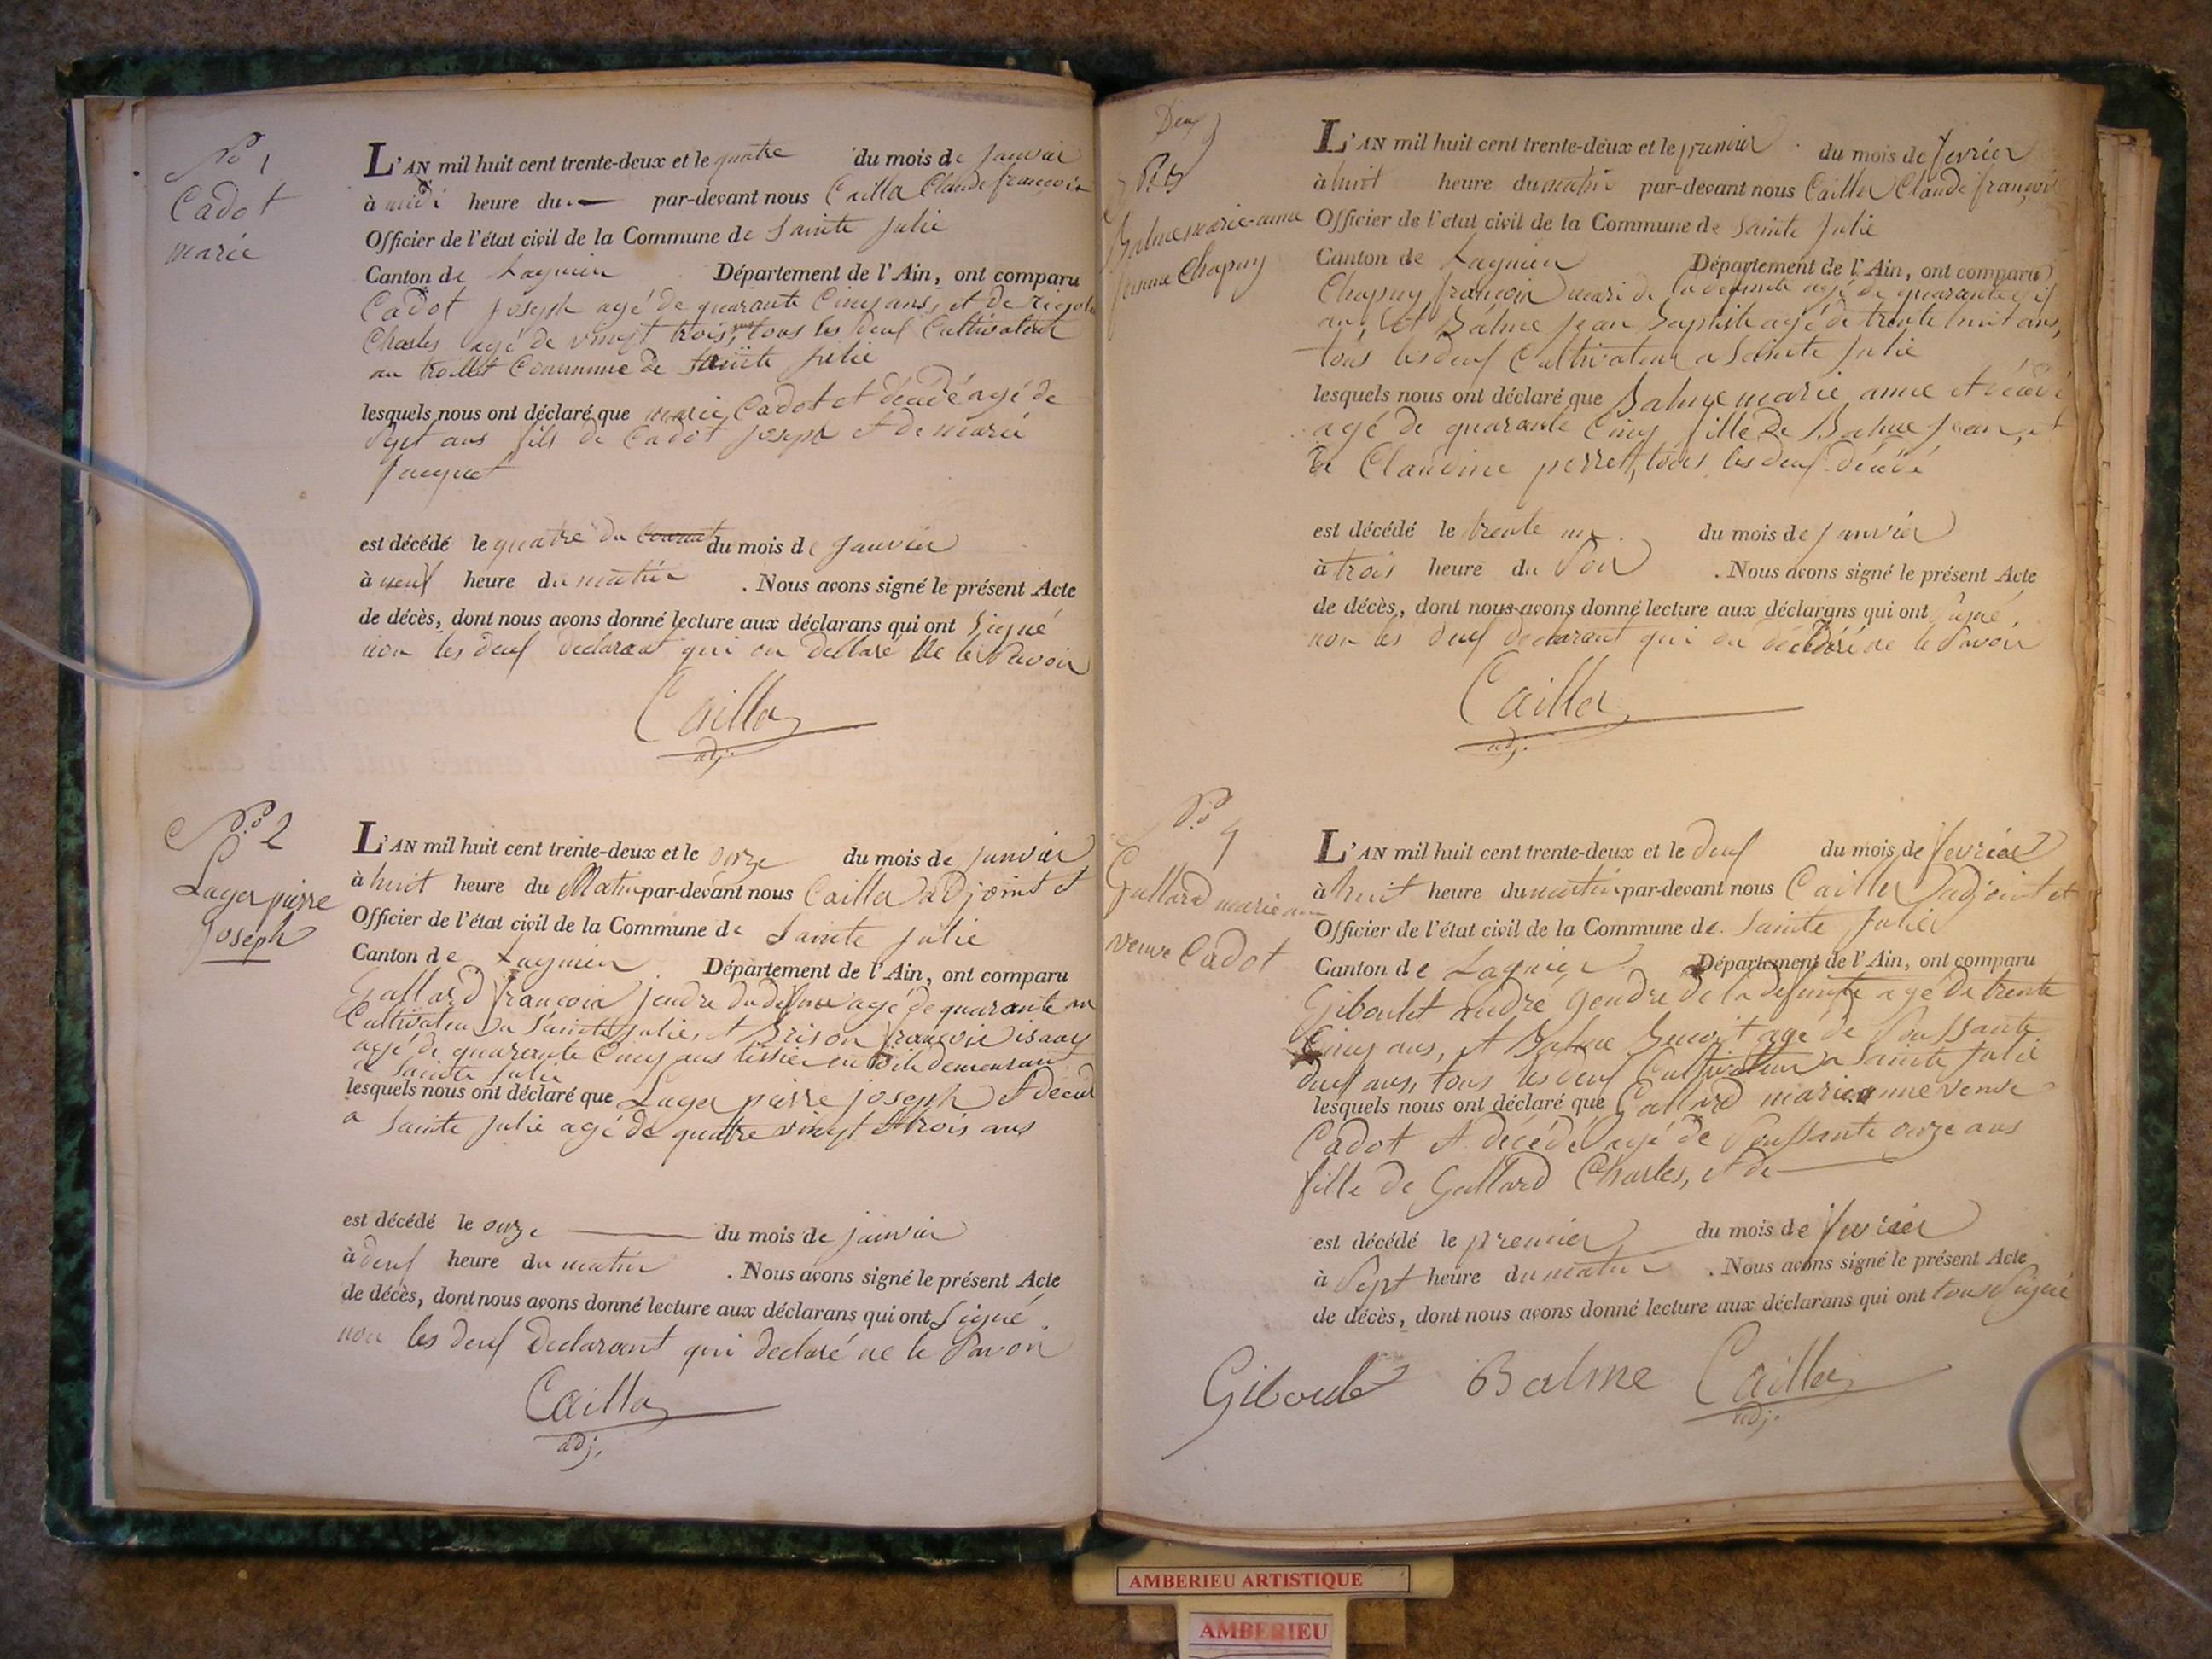 No 1
Cadot
marie
L'AN mil huit cent trente-deux et le quatre du mois de Janvier
à midi heure du — par-devant nous Cailla Claude françois
Officier de l'état civil de la Commune de Sainte Julie
Canton de Lagnieu Département de l'Ain, ont comparu
Cadot joseph agé de quarante Cinq ans, et de
Charles agé de vingt trois, ans tous les deux Cultivateur
au Commune de Sainte julie
lesquels nous ont déclaré que marie Cadot et décédé agé de
Sept ans fils de Cadot joseph et de marie
Jacquet
est décédé le quatre du courant du mois de Janvier
à neuf heure du matin . Nous avons signé le présent Acte
de décès, dont nous avons donné lecture aux déclarans qui ont Signé
non les deux declarant qui on declaré ne le Savoir
Cailla
adj.
No 2
Lager pierre
joseph
L'AN mil huit cent trente-deux et le onze du mois de janvier
à huit heure du Matin par-devant nous Cailla adjoint et
Officier de l'état civil de la Commune de Sainte Julie
Canton de Lagnieu Département de l'Ain, ont comparu
Gallard françois jendre du agé de quarante un
Cultivateur a Sainte julie, et Brison françois
agé de quarante Cinq ans tissier en toile demeurant
a Sainte Julie
lesquels nous ont déclaré que Lager pierre joseph et decédé
a Sainte Julie agé de quattre vingt et trois ans
est décédé le onze — du mois de janvier
à deux heure du matin . Nous avons signé le présent Acte
de décès, dont nous avons donné lecture aux déclarans qui ont Signé
non les deux declarant qui declaré ne le Savoir
Cailla
adj.
Balme marie-anne
femme Chapuy
L'AN mil huit cent trente-deux et le premier du mois de fevrier
à huit heure du matin par-devant nous Cailla Claude françois
Officier de l'état civil de la Commune de Sainte Julie
Canton de Lagnieu Département de l'Ain, ont comparu
Chapuy françois mari de la defunte agé de quarante
ans, et Balme Jean Baptiste agé de trente huit ans,
tous les deux Cultivateur a Sainte Julie
lesquels nous ont déclaré que Balme marie anne et décédé
agé de quarante Cinq fille de Balme Jean, et
de Claudine perret, tous les deux décédé
est décédé le trente un du mois de janvier
à trois heure du Soir . Nous avons signé le présent Acte
de décès, dont nous avons donné lecture aux déclarans qui ont Signé
non les deux declarant qui on déclaré ne le Savoir
Cailla
adj.
No 4
Gallard marie anne
veuve Cadot
L'AN mil huit cent trente-deux et le deux du mois de fevrier
à huit heure du matin par-devant nous Cailla adjoint et
Officier de l'état civil de la Commune de Sainte Julie
Canton de Lagnieu Département de l'Ain, ont comparu
Giboulet andré Gendre de la defunte agé de trente
Cinq ans, et Balme Benoit agé de Soissante
deux ans, tous les deux Cultivateur a Sainte Julie
lesquels nous ont déclaré que Gallard marie anne veuve
Cadot et décédé agé de Soussante onze ans
fille de Gallard Charles, et de —
est décédé le premier du mois de fevrier
à Sept heure du matin . Nous avons signé le présent Acte
de décès, dont nous avons donné lecture aux déclarans qui ont tous Signé
Giboulet Balme Cailla
adj.
AMBERIEU ARTISTIQUE
AMBERIEU